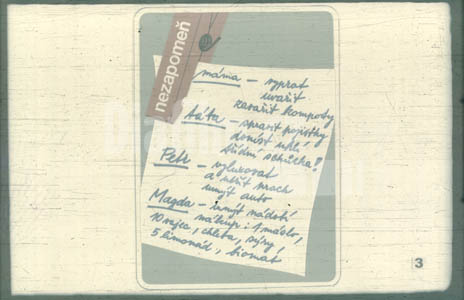 nezapomeň
máma – vyprat
uvařit
zavařit kompoty
táta – spravit pojistky
donést uhlí
třídní schůzka!
Petr – vyluxovat
a utřít prach
umýt auto
Magda – umýt nádobí
nákup: 1 máslo,
10 vajec, chleba, sýry!
5 limonád,
3